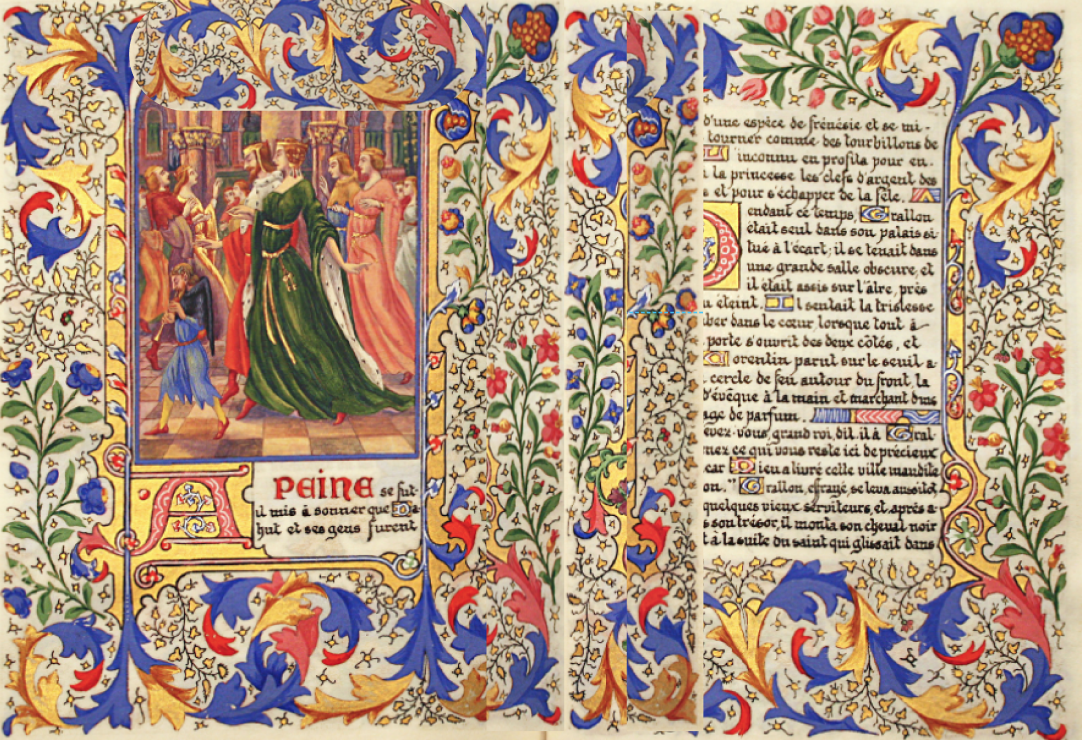 A PEINE se fut-
il mis à sonner que Da-
hut et ses gens furent
d'une espèce de frénésie et se mi-
tourner comme des tourbillons de
L'inconnu en profita pour en-
à la princesse les clefs d'argent des
s et pour s'échapper de la fête.
Pendant ce temps, Grallon
était seul dans son palais si-
tué à l'écart; il se tenait dans
une grande salle obscure, et
il était assis sur l'âtre, près
u éteint. Il sentait la tristesse
ber dans le cœur, lorsque tout à
porte s'ouvrit des deux côtés, et
Corentin parut sur le seuil a-
cercle de feu autour du front, la
d'évêque à la main et marchant dans
age de parfum.
evez-vous, grand roi, dit-il à Gral-
mez ce qui vous reste ici de précieux
car Dieu a livré cette ville maudite
on." Grallon, effrayé, se leva aussitôt,
quelques vieux serviteurs, et, après a-
s son trésor, il monta son cheval noir
t à la suite du saint qui glissait dans